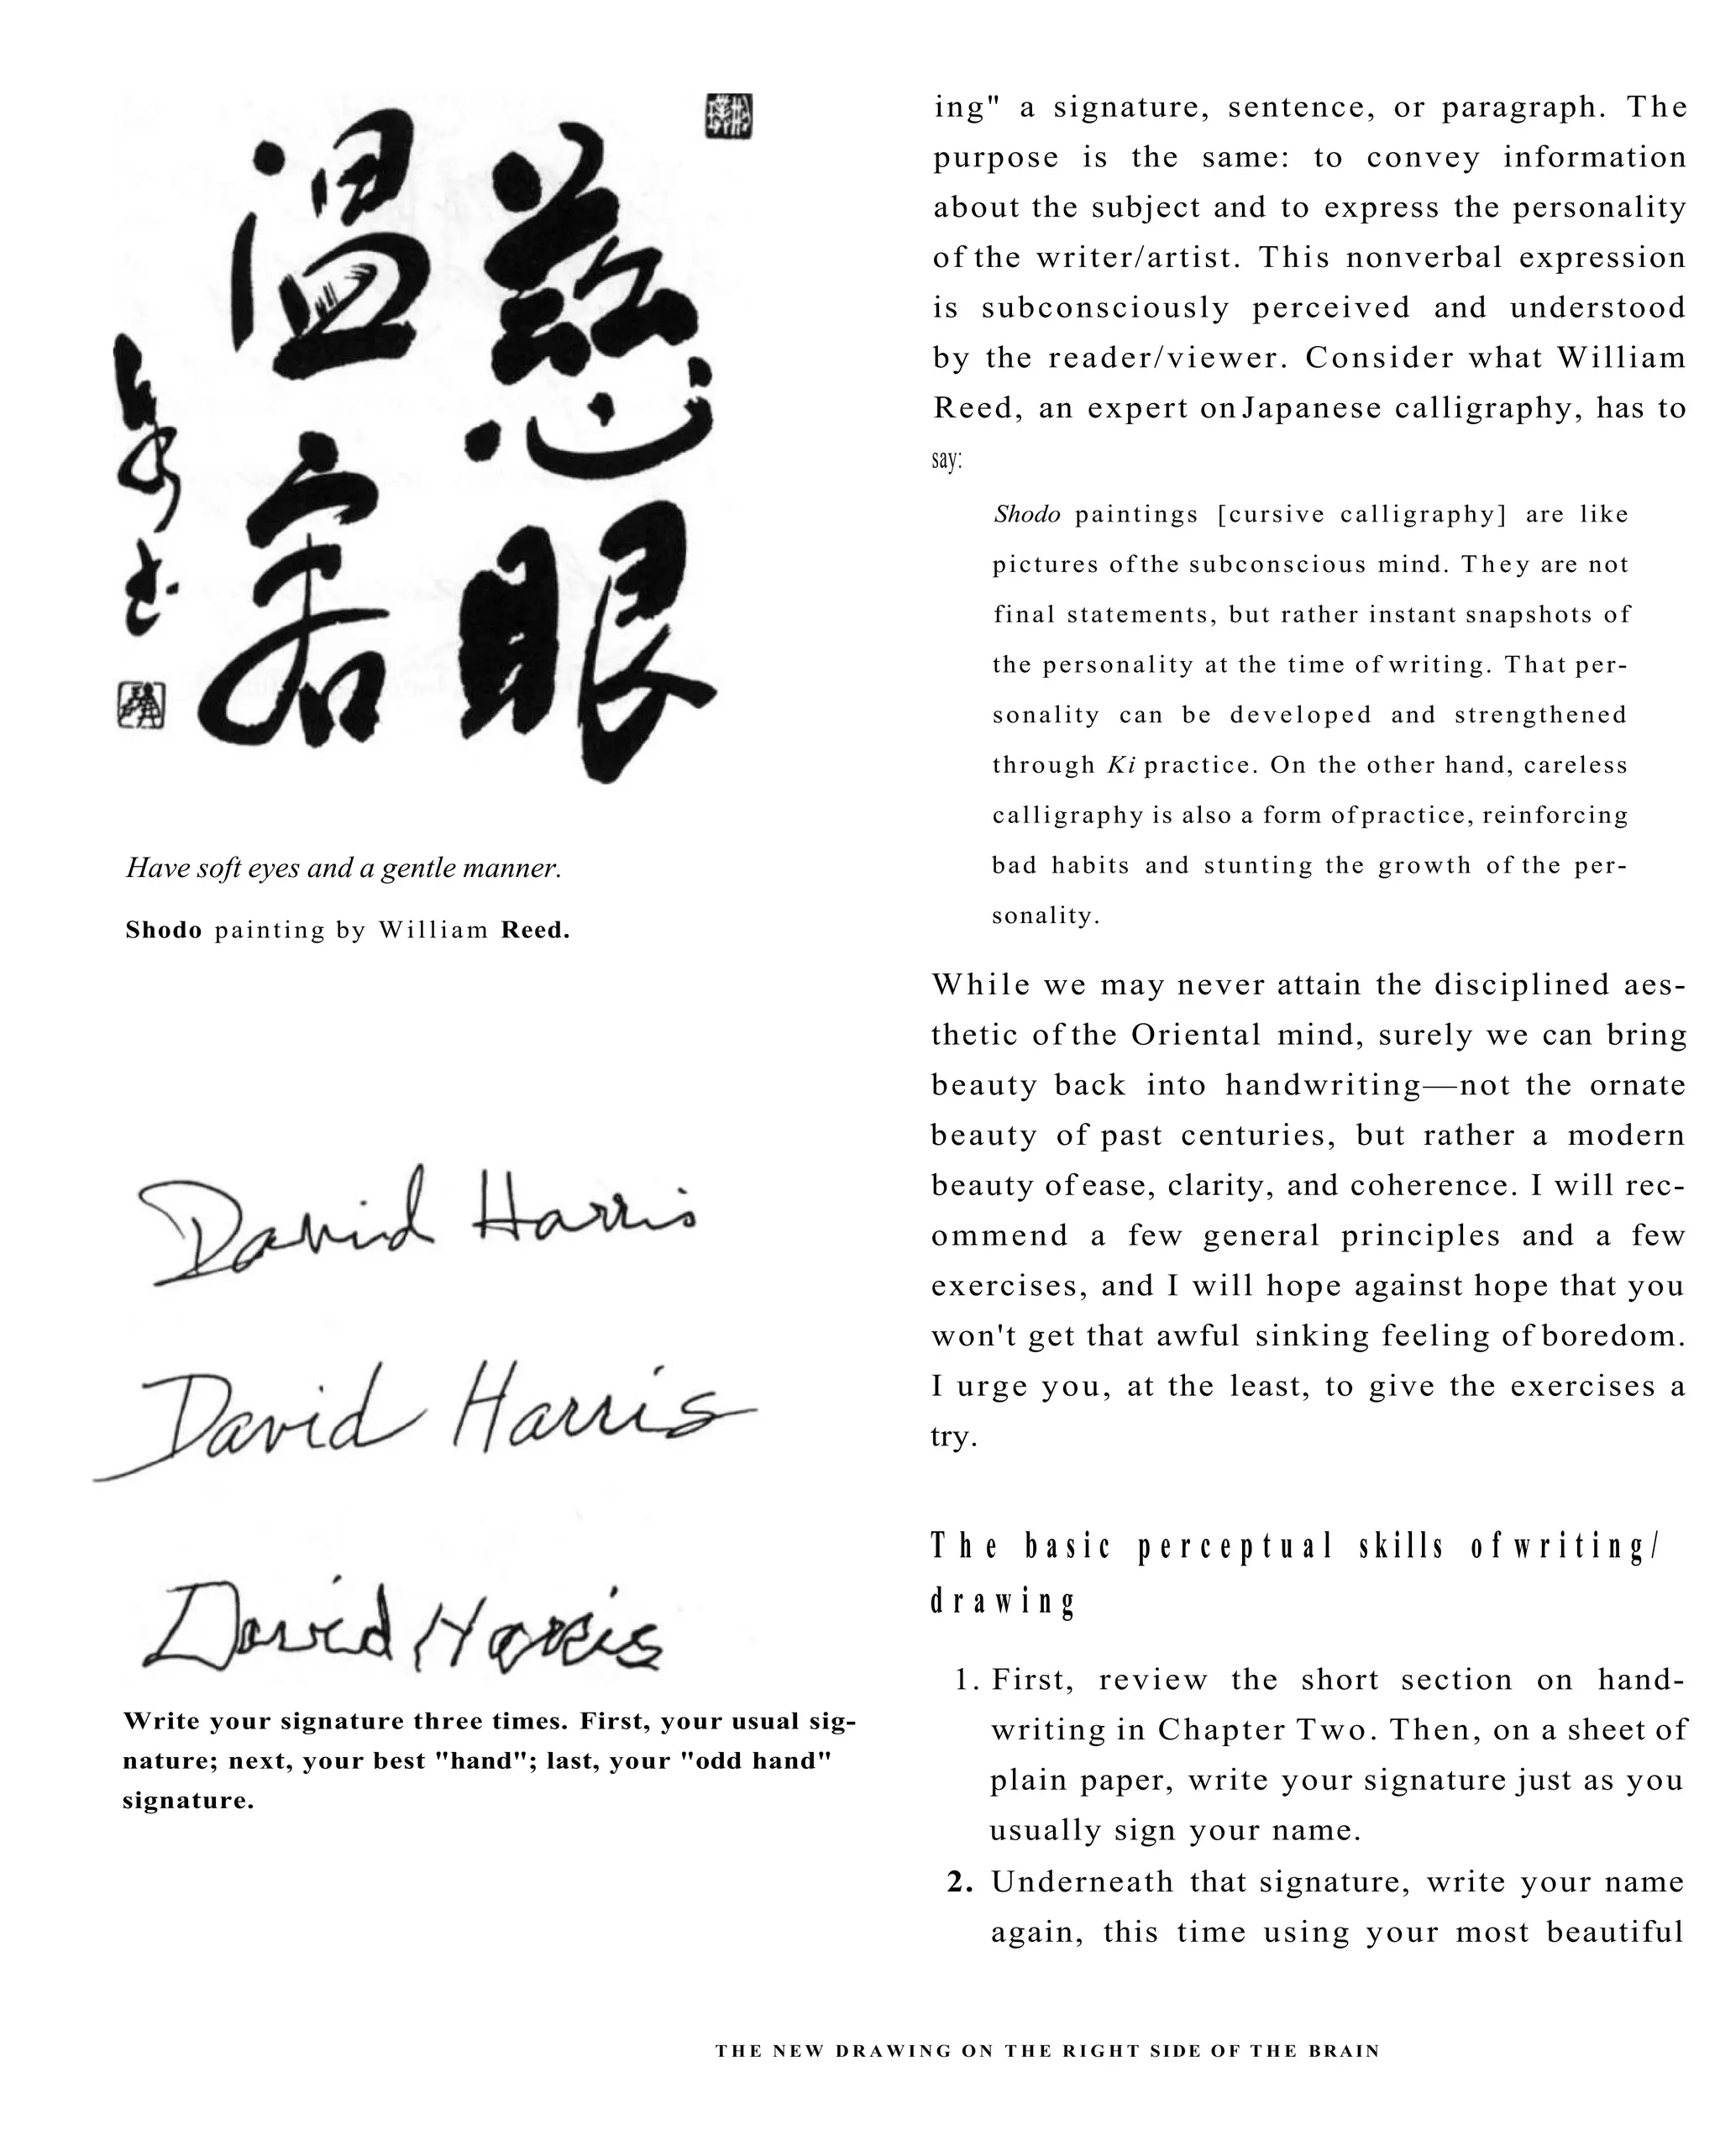 慈眼
温容
Have soft eyes and a gentle manner.
Shodo painting by William Reed.
David Harris
David Harris
David Harris
Write your signature three times. First, your usual sig-
nature; next, your best "hand"; last, your "odd hand"
signature.
ing" a signature, sentence, or paragraph. The
purpose is the same: to convey information
about the subject and to express the personality
of the writer/artist. This nonverbal expression
is subconsciously perceived and understood
by the reader/viewer. Consider what William
Reed, an expert on Japanese calligraphy, has to
say:
Shodo paintings [cursive calligraphy] are like
pictures of the subconscious mind. They are not
final statements, but rather instant snapshots of
the personality at the time of writing. That per-
sonality can be developed and strengthened
through Ki practice. On the other hand, careless
calligraphy is also a form of practice, reinforcing
bad habits and stunting the growth of the per-
sonality.
While we may never attain the disciplined aes-
thetic of the Oriental mind, surely we can bring
beauty back into handwriting—not the ornate
beauty of past centuries, but rather a modern
beauty of ease, clarity, and coherence. I will rec-
ommend a few general principles and a few
exercises, and I will hope against hope that you
won't get that awful sinking feeling of boredom.
I urge you, at the least, to give the exercises a
try.
The basic perceptual skills of writing/
drawing
1. First, review the short section on hand-
writing in Chapter Two. Then, on a sheet of
plain paper, write your signature just as you
usually sign your name.
2. Underneath that signature, write your name
again, this time using your most beautiful
THE NEW DRAWING ON THE RIGHT SIDE OF THE BRAIN